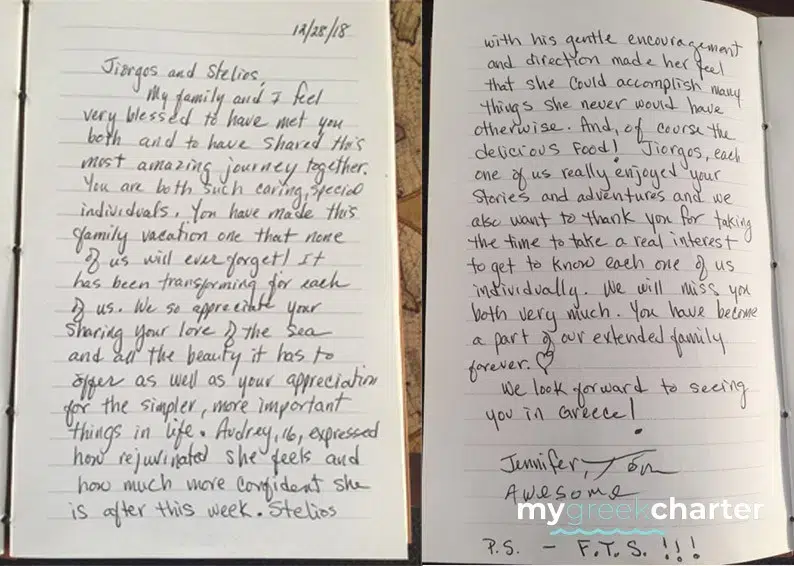 12/28/18
Jiorgos and Stelios,
My family and I feel
very blessed to have met you
both and to have shared this
most amazing journey together.
You are both such caring, special
individuals. You have made this
family vacation one that none
of us will ever forget! It
has been transforming for each
of us. We so appreciate your
sharing your love of the sea
and all the beauty it has to
offer as well as your appreciation
for the simpler, more important
things in life. Audrey, 16, expressed
how rejuvinated she feels and
how much more confident she
is after this week. Stelios
with his gentle encouragement
and direction made her feel
that she could accomplish many
things she never would have
otherwise. And, of course the
delicious food! Jiorgos, each
one of us really enjoyed your
stories and adventures and we
also want to thank you for taking
the time to take a real interest
to get to know each one of us
individually. We will miss you
both very much. You have become
a part of our extended family
forever. ♡
We look forward to seeing
you in Greece!
Jennifer,
Awesome
mygreekcharter
P.S. - F.T.S. !!!